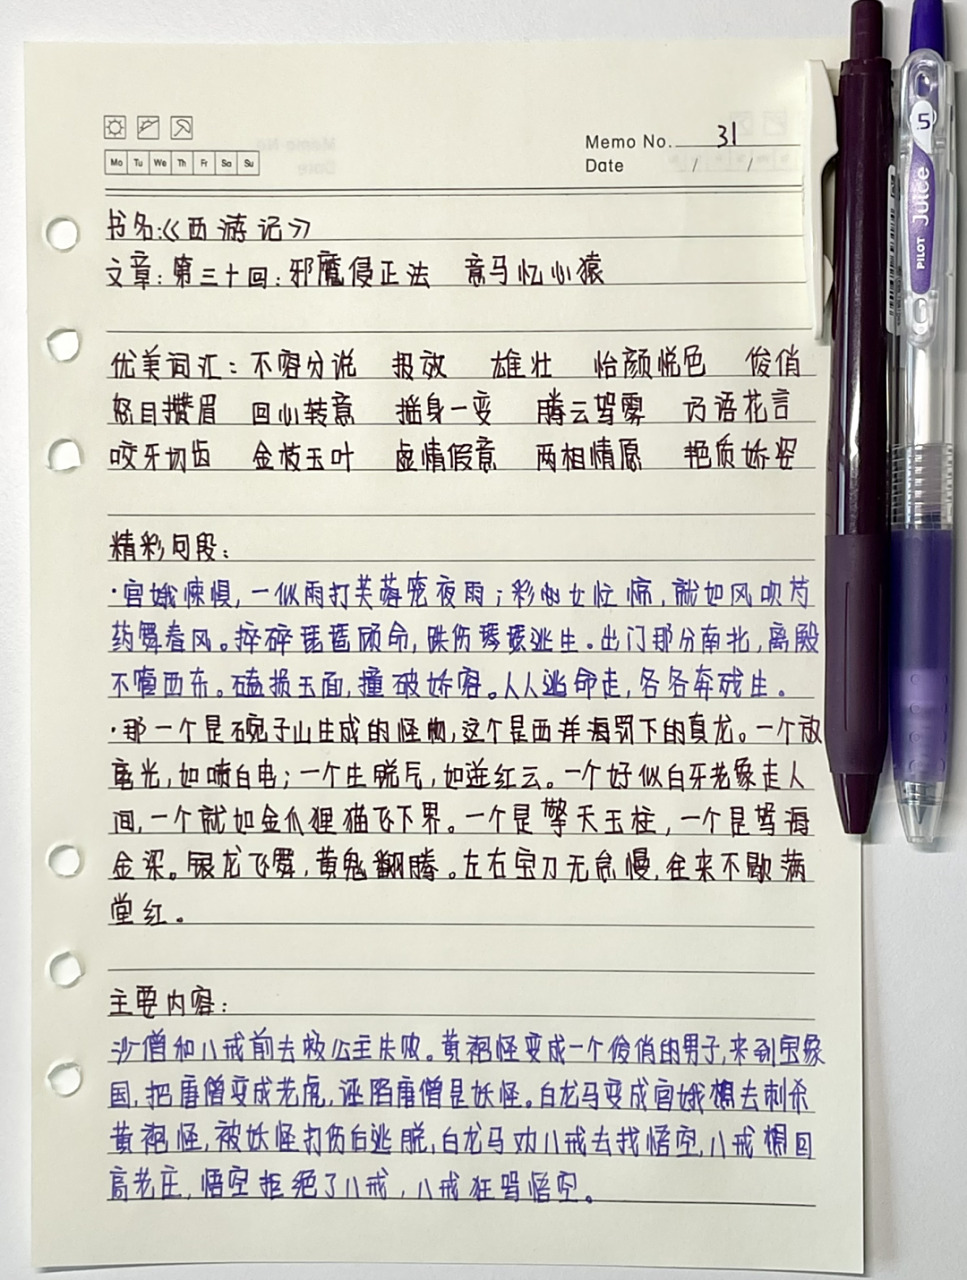 Memo No. 31
Mo Tu We Th Fr Sa Su
Date / /
书名:《西游记》
文章:第三十回:邪魔侵正法 意马忆心猿
优美词汇:不容分说 报效 雄壮 怡颜悦色 俊俏
怒目攒眉 回心转意 摇身一变 腾云驾雾 巧语花言
咬牙切齿 金枝玉叶 虚情假意 两相情愿 艳质娇姿
精彩句段:
·宫娥悚惧,一似雨打芙蓉笼夜雨;彩女忙惊,就如风吹芍
药舞春风。捽碎琵琶顾命,跌伤琴瑟逃生。出门那分南北,离殿
不管西东。磕损玉面,撞破娇容。人人逃命走,各各奔残生。
·那一个是碗子山生成的怪物,这个是西洋海罚下的真龙。一个放
毫光,如喷白电;一个生脱气,如迸红云。一个好似白牙老象走人
间,一个就如金爪狸猫飞下界。一个是擎天玉柱,一个是驾海
金梁。银龙飞舞,黄鬼翻腾。左右宝刀无怠慢,往来不歇满
堂红。
主要内容:
沙僧和八戒前去救公主失败。黄袍怪变成一个俊俏的男子,来到宝象
国,把唐僧变成老虎,诬陷唐僧是妖怪。白龙马变成宫娥想去刺杀
黄袍怪,被妖怪打伤后逃脱,白龙马劝八戒去找悟空,八戒想回
高老庄,悟空拒绝了八戒,八戒狂骂悟空。
PILOT Juice 5